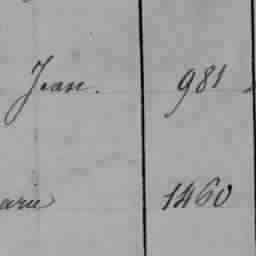 Jean. 981
arie 1460